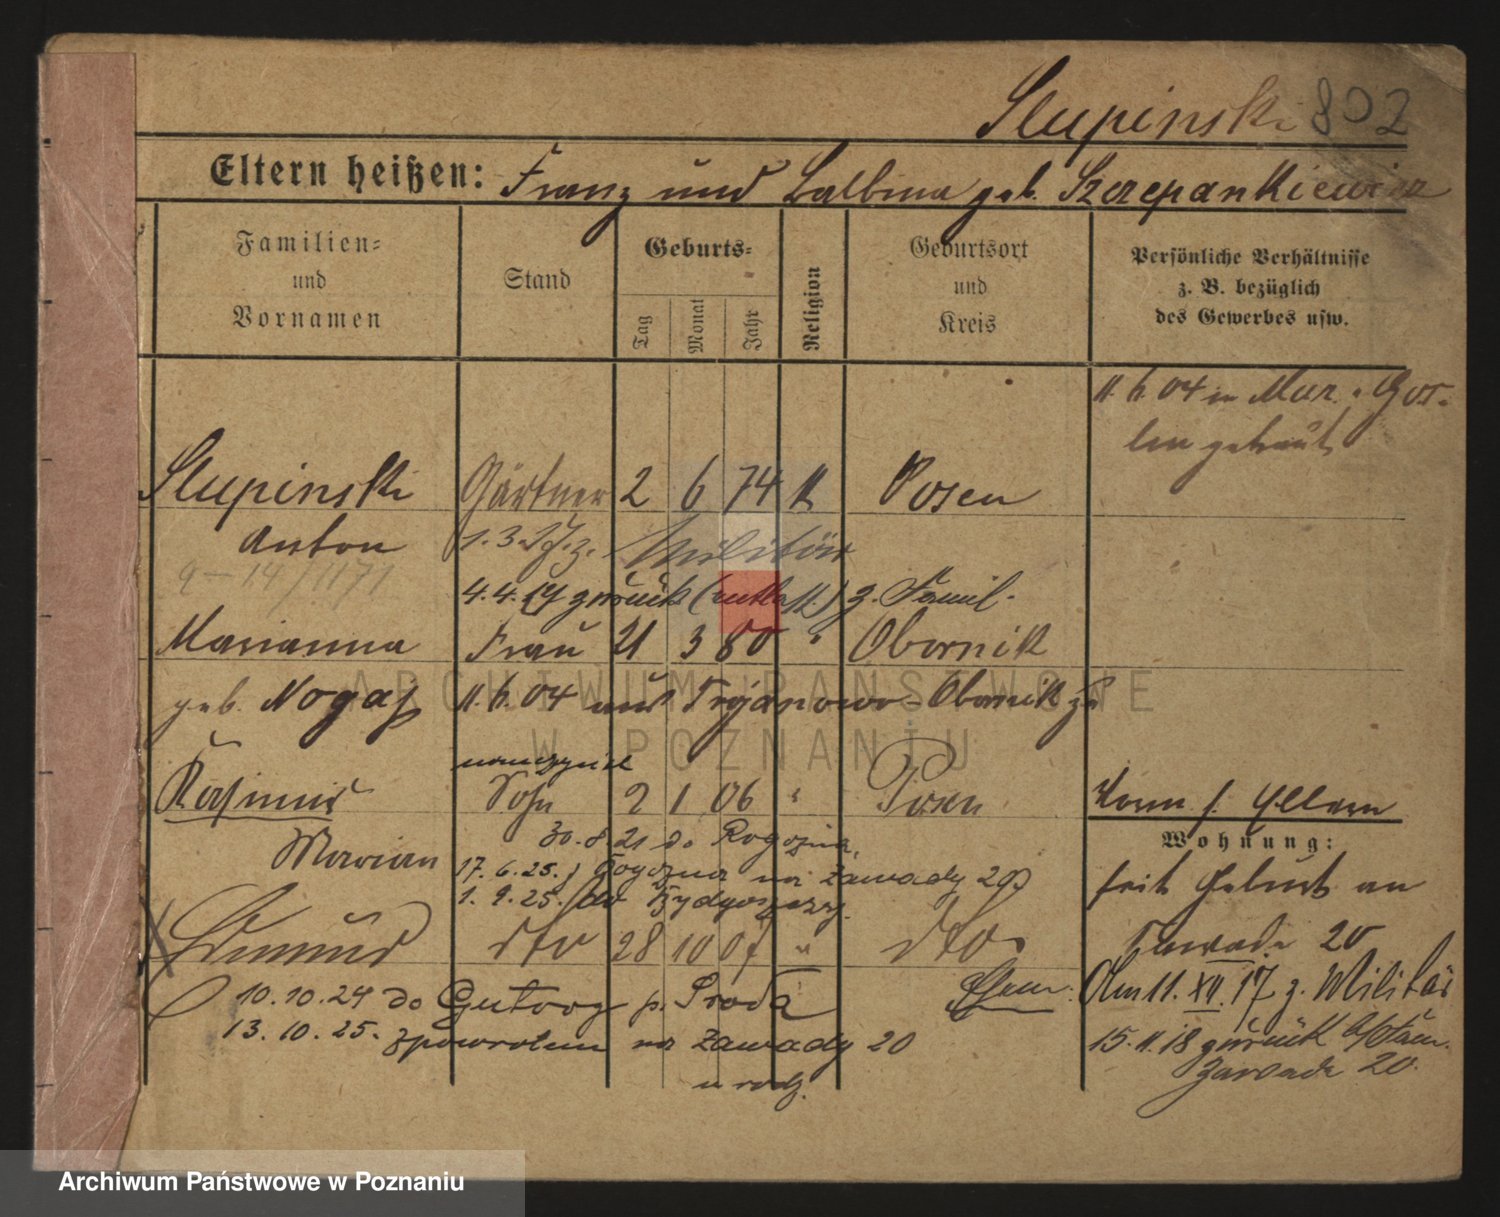 Slupinski 802
Eltern heißen: Franz und Balbina geb. Szczepankiewicz
Familien- und Vornamen
Stand
Geburts-
Tag
Monat
Jahr
Religion
Geburtsort und Kreis
Persönliche Verhältnisse
z. B. bezüglich
des Gewerbes usw.
11.6.04 in Mur. Gos-
lin getraut
Slupinski Gärtner 2 6 74 k Posen
Anton 1.3. z. Militär
9-14/1171
4.4. zurück (entlass.) z. Famil.
Marianna Frau 21 3 80 " Obornik
geb. Nogaj 11.6.04 aus Trojanowo-Obornik
nauczyciel
Kasimir Sohn 2 1 06 " Posen
Marian 30.8.21 do Rogozna
17.6.25. z Rogozna na Zawady 20
1.9.25. do Bydgoszczy
Edmund dto 28 10 07 " dto
10.10.24 do Gutowy p. Środa
13.10.25. zpowrotem na Zawady 20
u rodz.
Eltern
Wohnung:
seit Geburt an
Zawade 20
Am 11.XII.17 z. Militär
15.11.18 zurück
Zawade 20.
ARCHIWUM PAŃSTWOWE
W POZNANIU
Archiwum Państwowe w Poznaniu